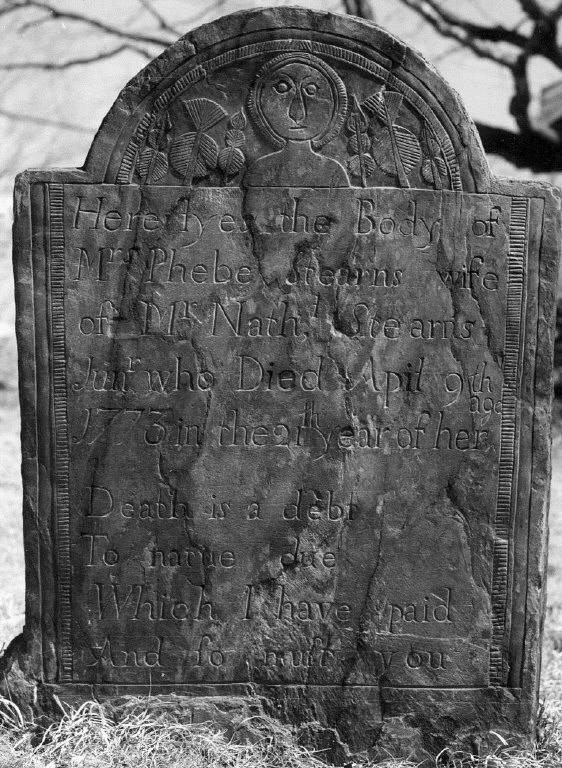 Here lyes the Body of
Mrs Phebe Stearns wife
of Mr Nathl Stearns
Junr who Died Apil 9th
1773 in the 21th year of her age
Death is a debt
To natue due
Which I have paid
And ſo muſt you